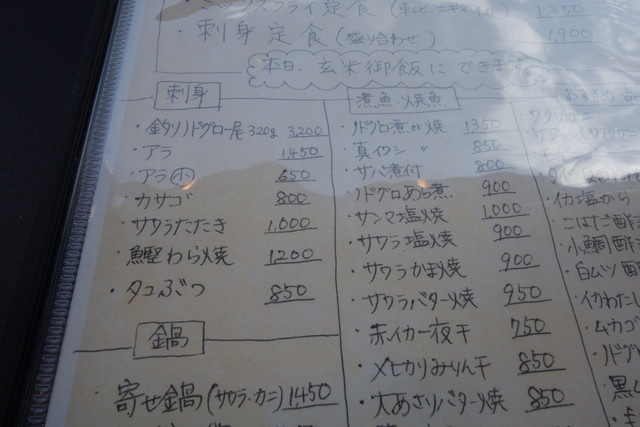 定食
1,250
・刺身定食(盛り合わせ) 1,900
本日、玄米御飯にできます。
刺身
・釣りノドグロ一尾320g 3,200
・アラ 1,450
・アラ(小) 650
・カサゴ 800
・サワラたたき 1,000
・鰹わら焼 1200
・タコぶつ 850
鍋
・寄せ鍋(サワラ・カニ) 1,450
煮魚・焼魚
・ノドグロ煮or焼 1350
・真イワシ 〃 850
・サバ煮付 800
・ノドグロあら煮 900
・サンマ塩焼 1,000
・サワラ塩焼 900
・サワラかま焼 900
・サワラバター焼 950
・赤イカ一夜干 750
・メヒカリみりん干 850
・大あさりバター焼 850
・イカ塩から
・こはだ酢
・小鯛酢
・白ムツ酢
・イカわた
・ムカゴ
・ノドグロ
・黒